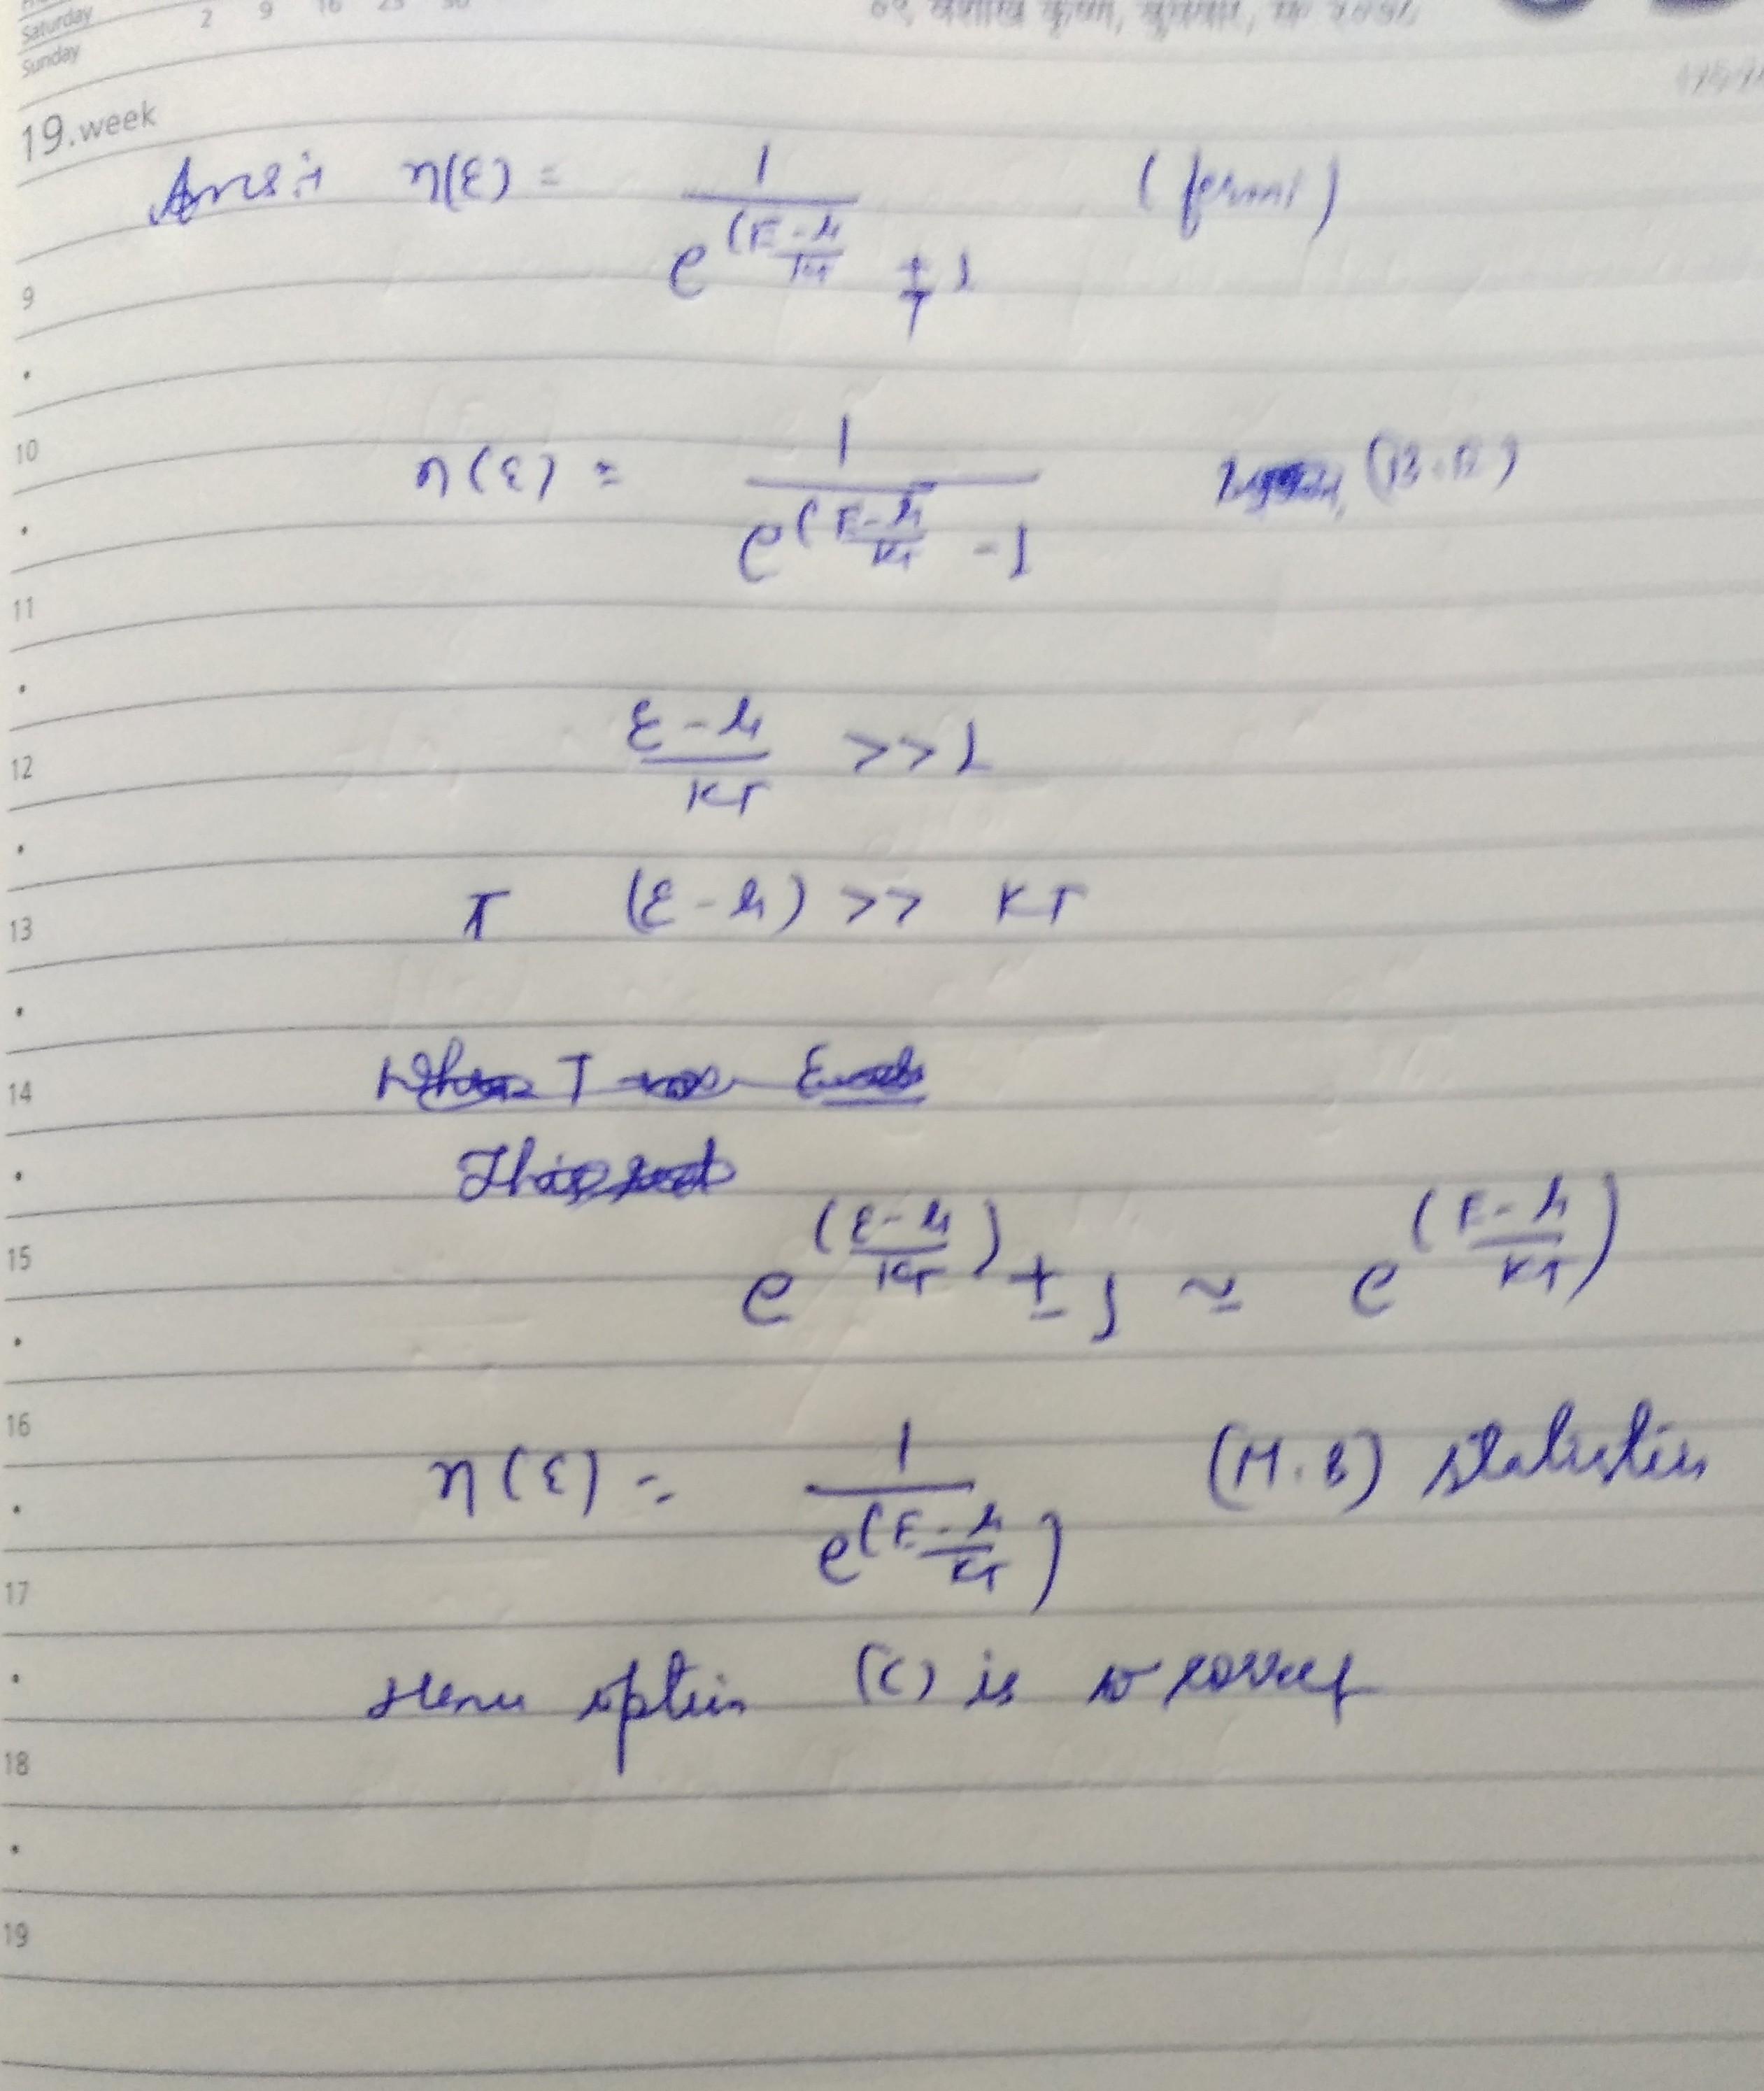 Saturday 2 9 16 23 30
Sunday
19.week
Ans:→ n(ε) = 1 / e^(E-μ/KT + 1 (fermi)
9
10
n(ε) = 1 / e^(E-μ/KT - 1 (B.E)
11
12
ε-μ/KT >> 1
13
(ε-μ) >> KT
14
When T
This
15
e^(ε-μ/KT) ± 1 ≃ e^(E-μ/KT)
16
n(ε) = 1 / e^(E-μ/KT) (M.B) statistics
17
Hence option (C) is correct
18
19